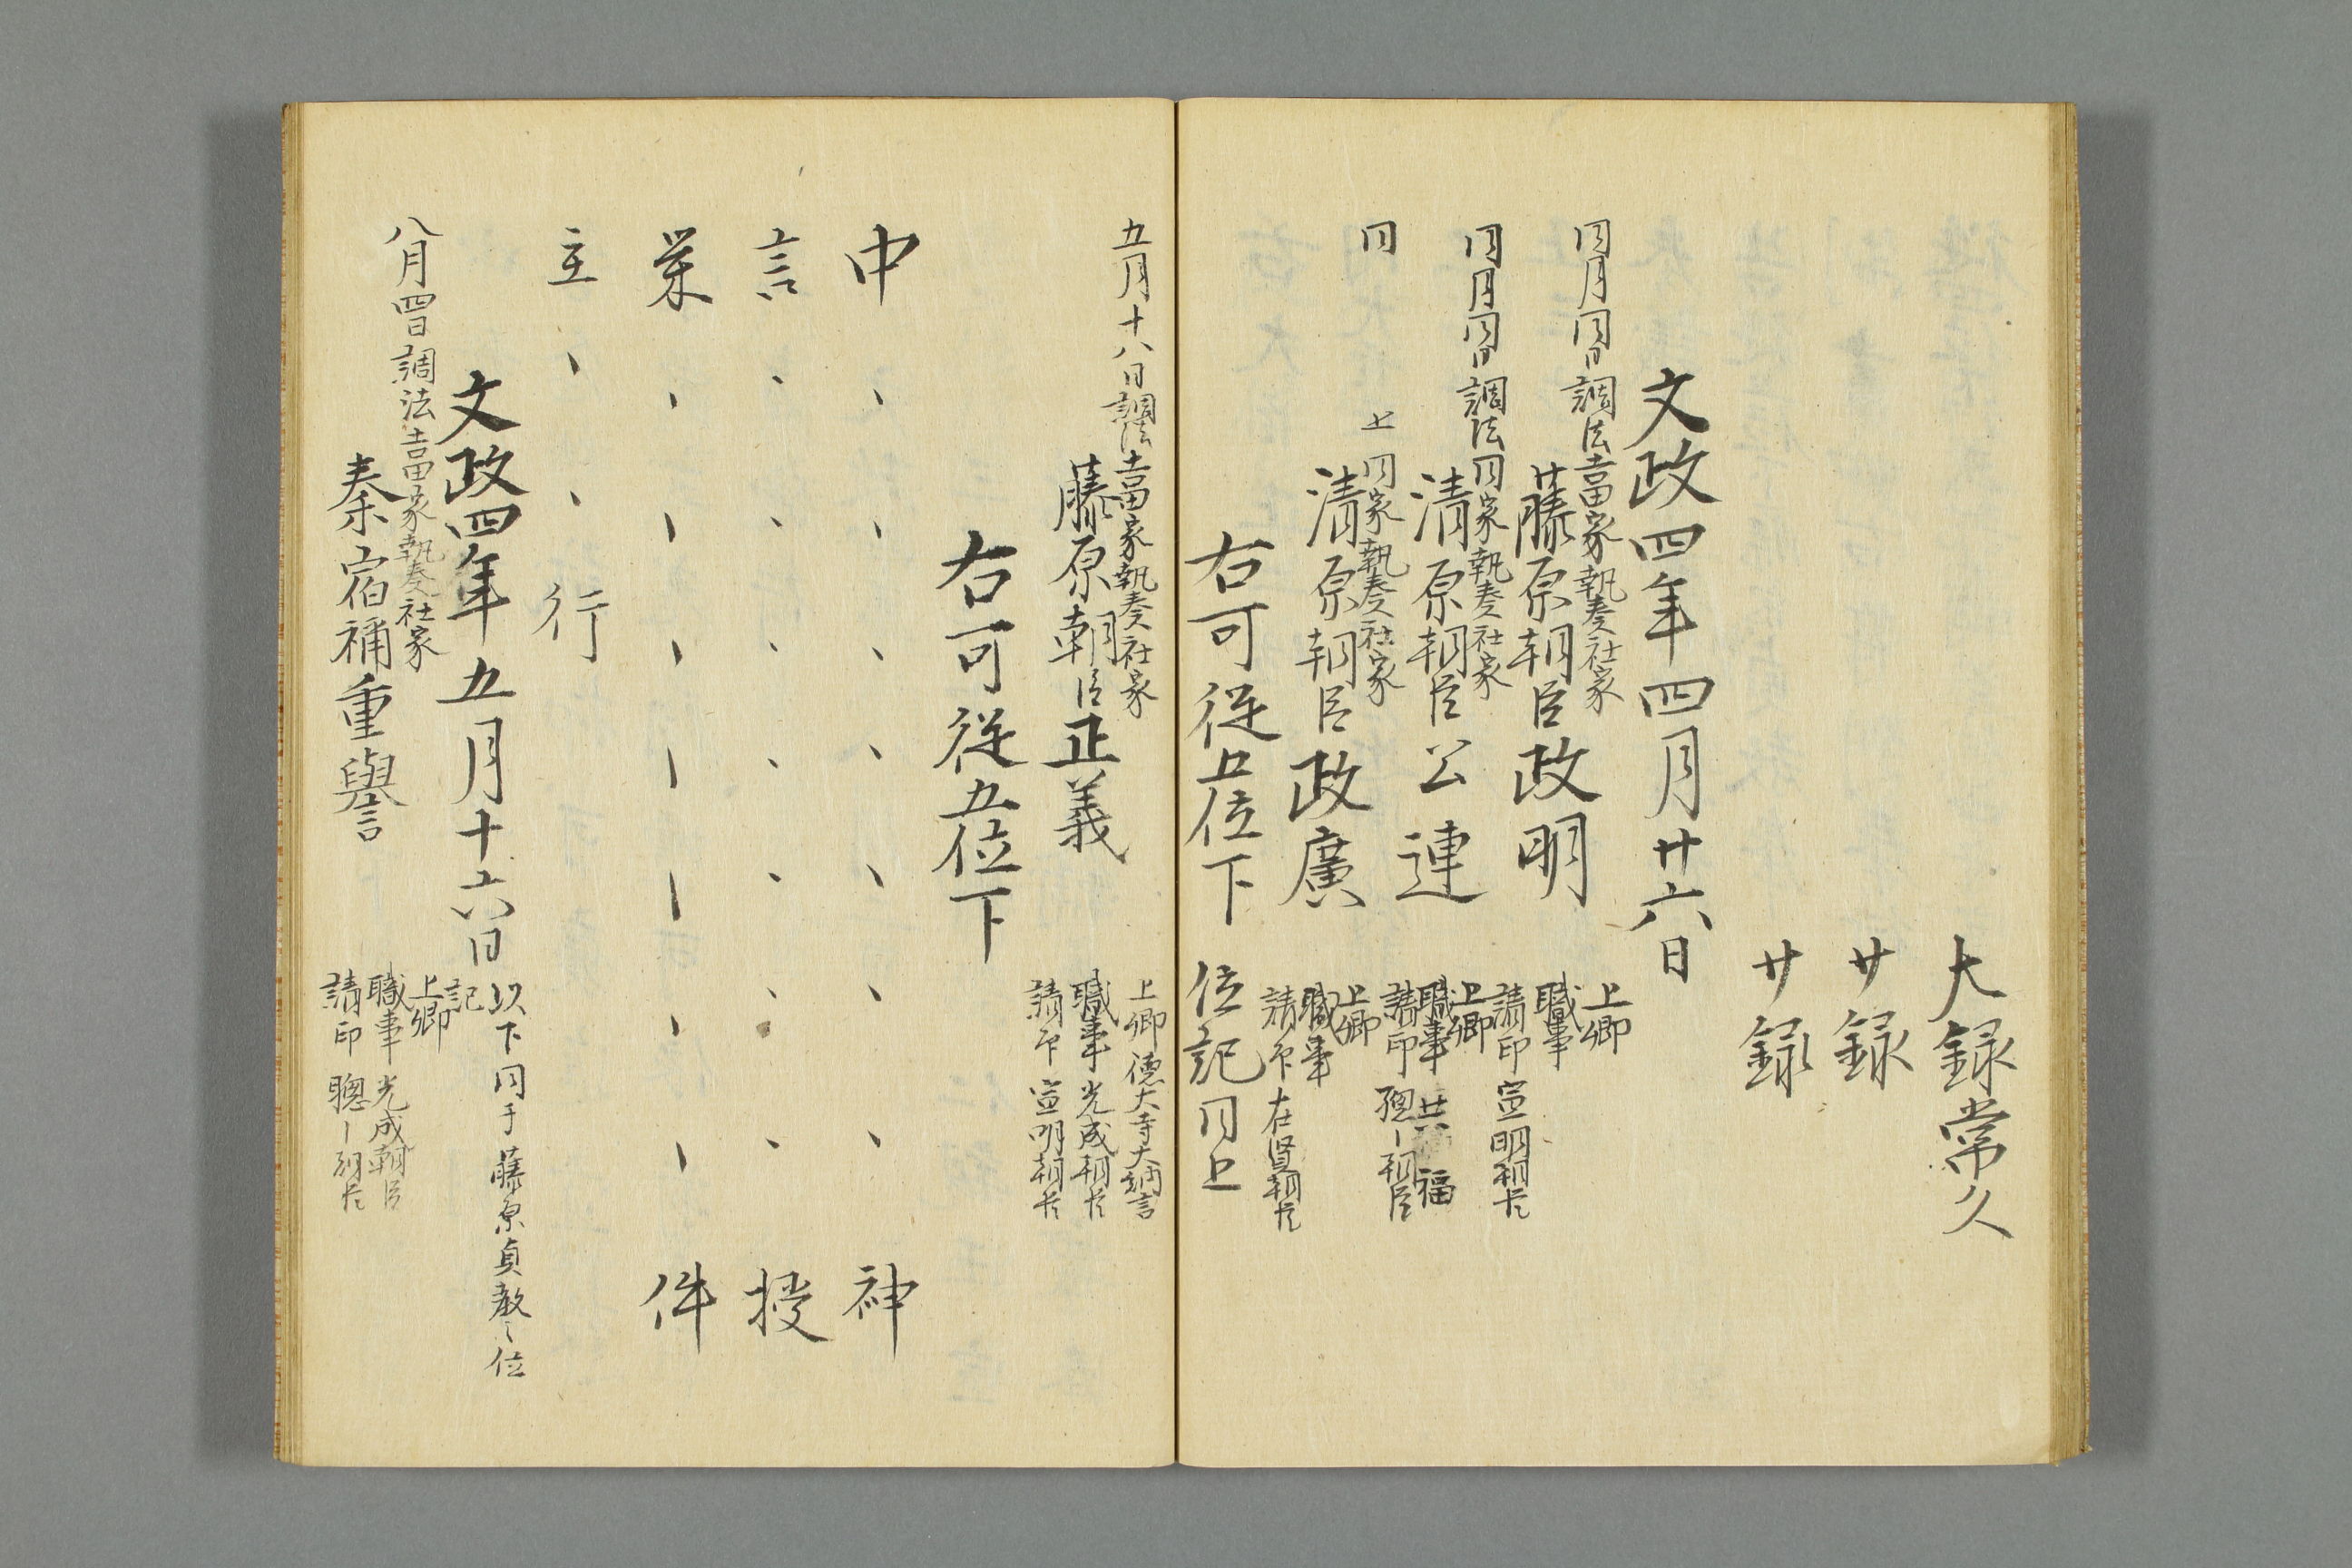 大録常久
廿録
廿録
文政四年四月廿六日
同月同日調法吉田家執奏社家
藤原朝臣政明
上卿
職事
請印 宣明朝臣
同月同日調法同家執奏社家
清原朝臣公連
上卿
職事 共福
請印 聰ー朝臣
同 上 同家執奏社家
清原朝臣政廣
上卿
職事
請印 在賢朝臣
右可從五位下 位記同上
五月十八日調法吉田家執奏社家
藤原朝臣正義
上卿 德大寺大納言
職事 光成朝臣
請印 宣明朝臣
右可從五位下
中、、、、、、、神
言、、、、、、、授
業、、、、、、、件
主、、行
文政四年五月十六日
以下同于藤原貞教之位
記
八月四日調法吉田家執奏社家
秦宿祢重譽
上卿
職事 光成朝臣
請印 聰ー朝臣